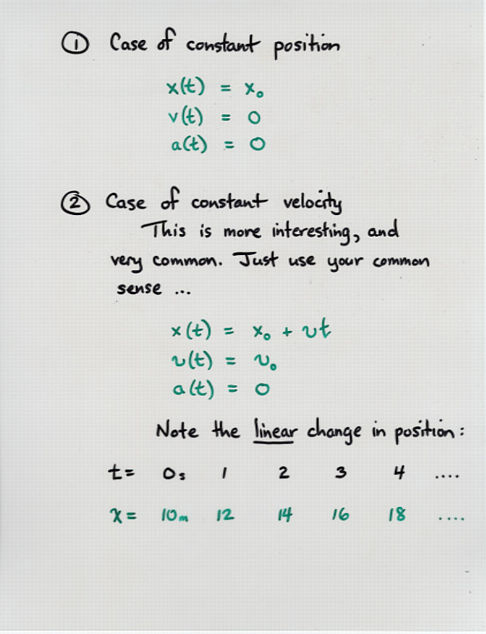 ① Case of constant position
x(t) = x₀
v(t) = 0
a(t) = 0
② Case of constant velocity
This is more interesting, and
very common. Just use your common
sense ...
x(t) = x₀ + vt
v(t) = v₀
a(t) = 0
Note the linear change in position:
t = 0s 1 2 3 4 ....
x = 10m 12 14 16 18 ....